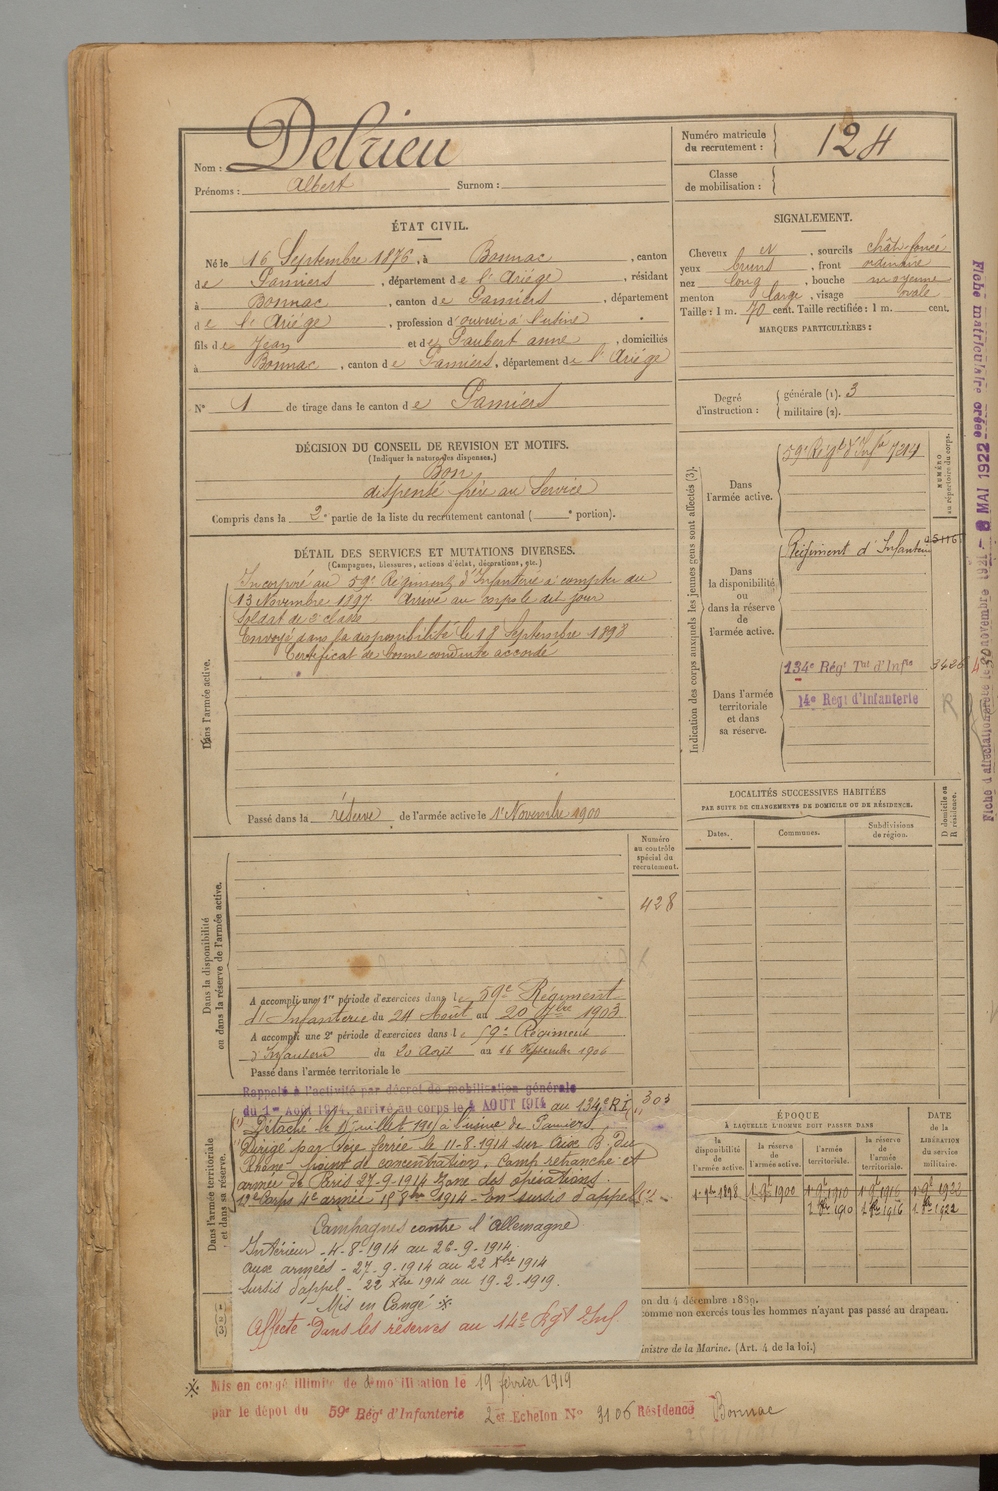 Nom : Delrieu
Prénoms : Albert Surnom :
Numéro matricule
du recrutement : 124
Classe
de mobilisation :
ÉTAT CIVIL.
Né le 16 Septembre 1876, à Bonnac, canton
de Pamiers, département de l'Ariége, résidant
à Bonnac, canton de Pamiers, département
de l'Ariége, profession d'ouvrier à l'usine
fils de Jean et de Gaubert anne, domiciliés
à Bonnac, canton de Pamiers, département de l'Ariége
N° 1 de tirage dans le canton de Pamiers
SIGNALEMENT.
Cheveux et, sourcils chât-foncé
yeux bruns, front ordinaire
nez long, bouche moyenne
menton large, visage ovale
Taille : 1 m. 70 cent. Taille rectifiée : 1 m. cent.
MARQUES PARTICULIÈRES :
Degré
d'instruction :
générale (1). 3
militaire (2).
DÉCISION DU CONSEIL DE REVISION ET MOTIFS.
(Indiquer la nature des dispenses.)
Bon
dispensé frère au Service
Compris dans la 2e partie de la liste du recrutement cantonal ( e portion).
DÉTAIL DES SERVICES ET MUTATIONS DIVERSES.
(Campagnes, blessures, actions d'éclat, décorations, etc.)
Dans l'armée active.
Incorporé au 59e Régiment d'Infanterie à compter du
13 Novembre 1897 Arrivé au corps le dit jour
Soldat de 2e classe
Envoyé dans la disponibilité le 18 Septembre 1898
Certificat de bonne conduite accordé
Passé dans la réserve de l'armée active le 1er Novembre 1900
Indication des corps auxquels les jeunes gens sont affectés (3).
NUMÉRO
au répertoire du corps.
Dans
l'armée active.
59e Régt d'Infie 7214
Dans
la disponibilité
ou
dans la réserve
de
l'armée active.
Régiment d'Infanterie
Dans l'armée
territoriale
et dans
sa réserve.
134e Régt Tal d'Infie
14e Régt d'Infanterie
R
LOCALITÉS SUCCESSIVES HABITÉES
PAR SUITE DE CHANGEMENTS DE DOMICILE OU DE RÉSIDENCE.
Dates. Communes. Subdivisions
de région.
D domicile ou
R résidence.
Numéro
au contrôle
spécial du
recrutement.
428
Dans la disponibilité
ou dans la réserve de l'armée active.
A accompli une 1re période d'exercices dans le 59e Régiment
d'Infanterie du 24 Août au 20 7bre 1903
A accompli une 2e période d'exercices dans le 59e Régiment
d'Infanterie du 20 Août au 16 Septembre 1906
Passé dans l'armée territoriale le
Dans l'armée territoriale
et dans sa réserve.
Rappelé à l'activité par décret de mobilisation générale
du 1er Août 1914, arrivé au corps le 4 AOUT 1914 au 134e R.I. 303
Détaché le 15 juillet 1915 à l'usine de Pamiers.
Dirigé par Voie ferrée le 11-8-1914 sur Aix B. du
Rhône point de concentration, camp retranché et
armée de Paris 27-9-1914 Zone des opérations.
12e Corps 4e armée 15 8bre 1914 en sursis d'appel
Campagnes contre l'Allemagne
Intérieur - 4-8-1914 au 26-9-1914.
aux armées - 27-9-1914 au 22 Xbre 1914
sursis d'appel - 22 Xbre 1914 au 19-2-1919.
Mis en Congé ※
Affecté dans les réserves au 14e Rgt Inf.
(1)
(2)
(3)
ÉPOQUE
À LAQUELLE L'HOMME DOIT PASSER DANS
DATE
de la
LIBÉRATION
du service
militaire.
la
disponibilité
de
l'armée active.
la réserve
de
l'armée active.
l'armée
territoriale.
la réserve
de
l'armée
territoriale.
1er 9bre 1898 1er 9e 1900 1er 9e 1910 1er 9e 1916 1er 9e 1922
1er 8bre 1910 1er 8bre 1916 1er 8bre 1922
on du 4 décembre 1889.
comme non exercés tous les hommes n'ayant pas passé au drapeau.
inistre de la Marine. (Art. 4 de la loi.)
※ Mis en congé illimité de démobilisation le 19 février 1919
par le dépôt du 59e Régt d'Infanterie 2e Echelon N° 3106 Résidence Bonnac
Fiche matriculaire créée 8 MAI 1922